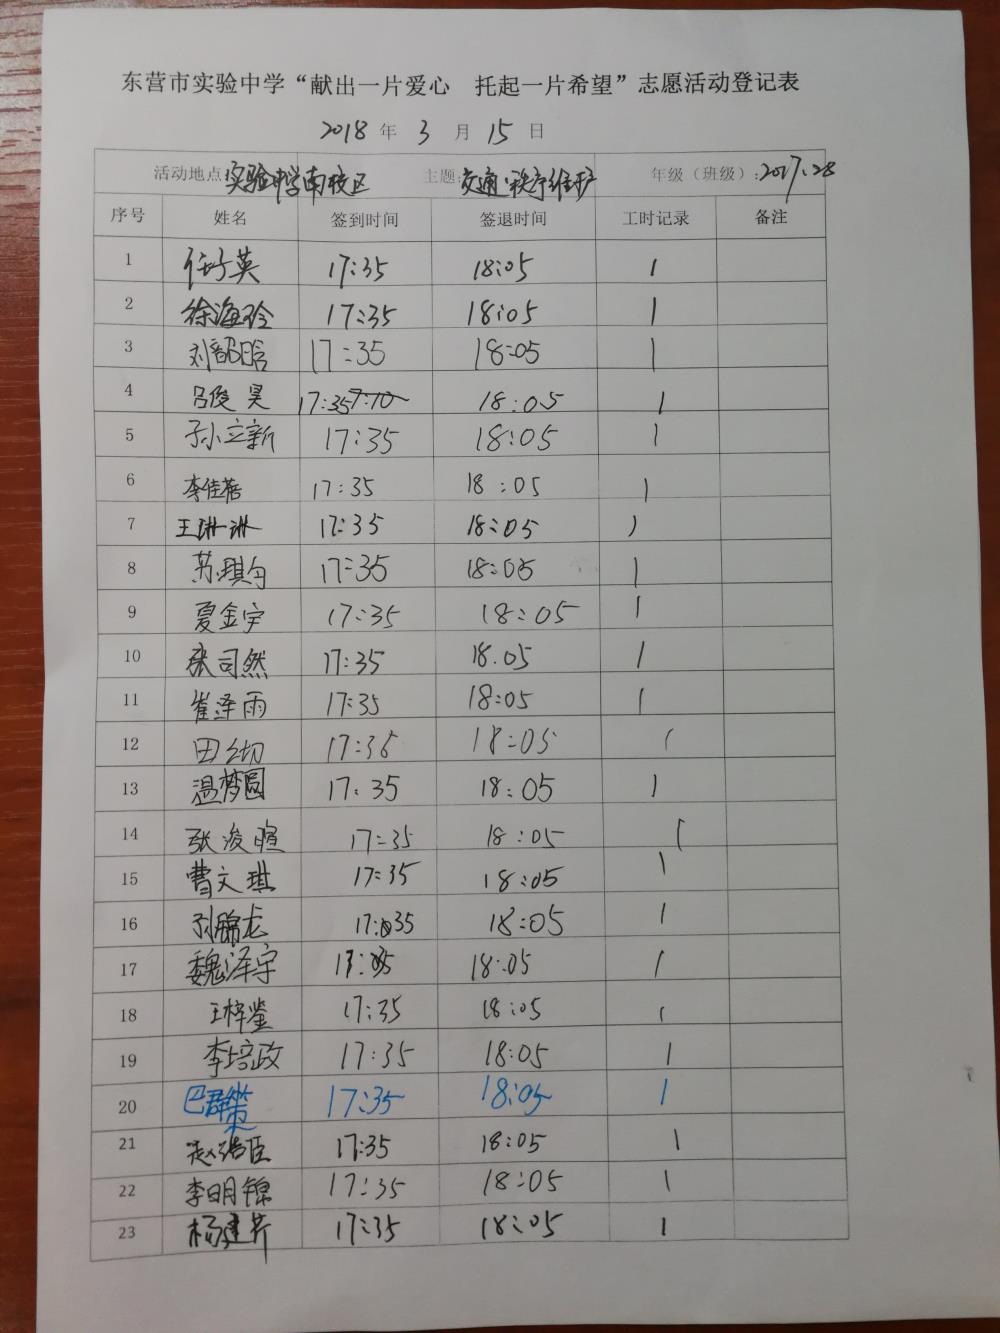 东营市实验中学“献出一片爱心 托起一片希望”志愿活动登记表
2018 年 3 月 15 日
活动地点:实验中学南校区 主题:交通·秩序维护 年级（班级）:2017.28
序号 姓名 签到时间 签退时间 工时记录 备注
1 任子英 17:35 18:05 1
2 徐海玲 17:35 18:05 1
3 刘韶晗 17:35 18:05 1
4 吕俊昊 17:35 18:05 1
5 孙立新 17:35 18:05 1
6 李佳蓓 17:35 18:05 1
7 王琳琳 17:35 18:05 1
8 苏琪钧 17:35 18:05 1
9 夏金宇 17:35 18:05 1
10 张司然 17:35 18.05 1
11 崔泽雨 17:35 18:05 1
12 田 17:35 18:05 1
13 温梦圆 17:35 18:05 1
14 张浚暄 17:35 18:05 1
15 曹文琪 17:35 18:05 1
16 孙锦龙 17:35 18:05 1
17 魏泽宇 17:35 18:05 1
18 王梓鉴 17:35 18:05 1
19 李培政 17:35 18:05 1
20 巴群策 17:35 18:05 1
21 赵浩臣 17:35 18:05 1
22 李明锦 17:35 18:05 1
23 杨建芹 17:35 18:05 1